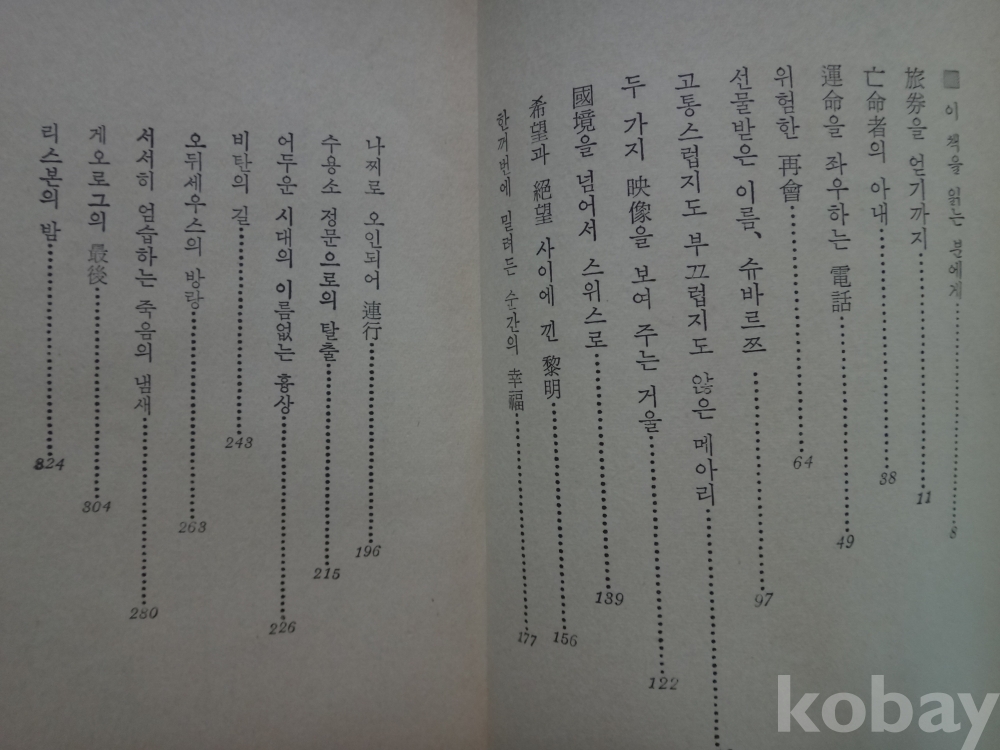 ■ 이 책을 읽는 분에게 8
旅券을 얻기까지 11
亡命者의 아내 38
運命을 좌우하는 電話 49
위험한 再會 64
선물받은 이름、슈바르쯔 97
고통스럽지도 부끄럽지도 않은 메아리
두 가지 映像을 보여 주는 거울 122
國境을 넘어서 스위스로 139
希望과 絕望 사이에 낀 黎明 156
한꺼번에 밀려든 순간의 幸福 177
나찌로 오인되어 連行 196
수용소 정문으로의 탈출 215
어두운 시대의 이름없는 흉상 226
비탄의 길 243
오뒤세우스의 방랑 263
서서히 엄습하는 죽음의 냄새 280
게오로그의 最後 304
리스본의 밤 324
kobay